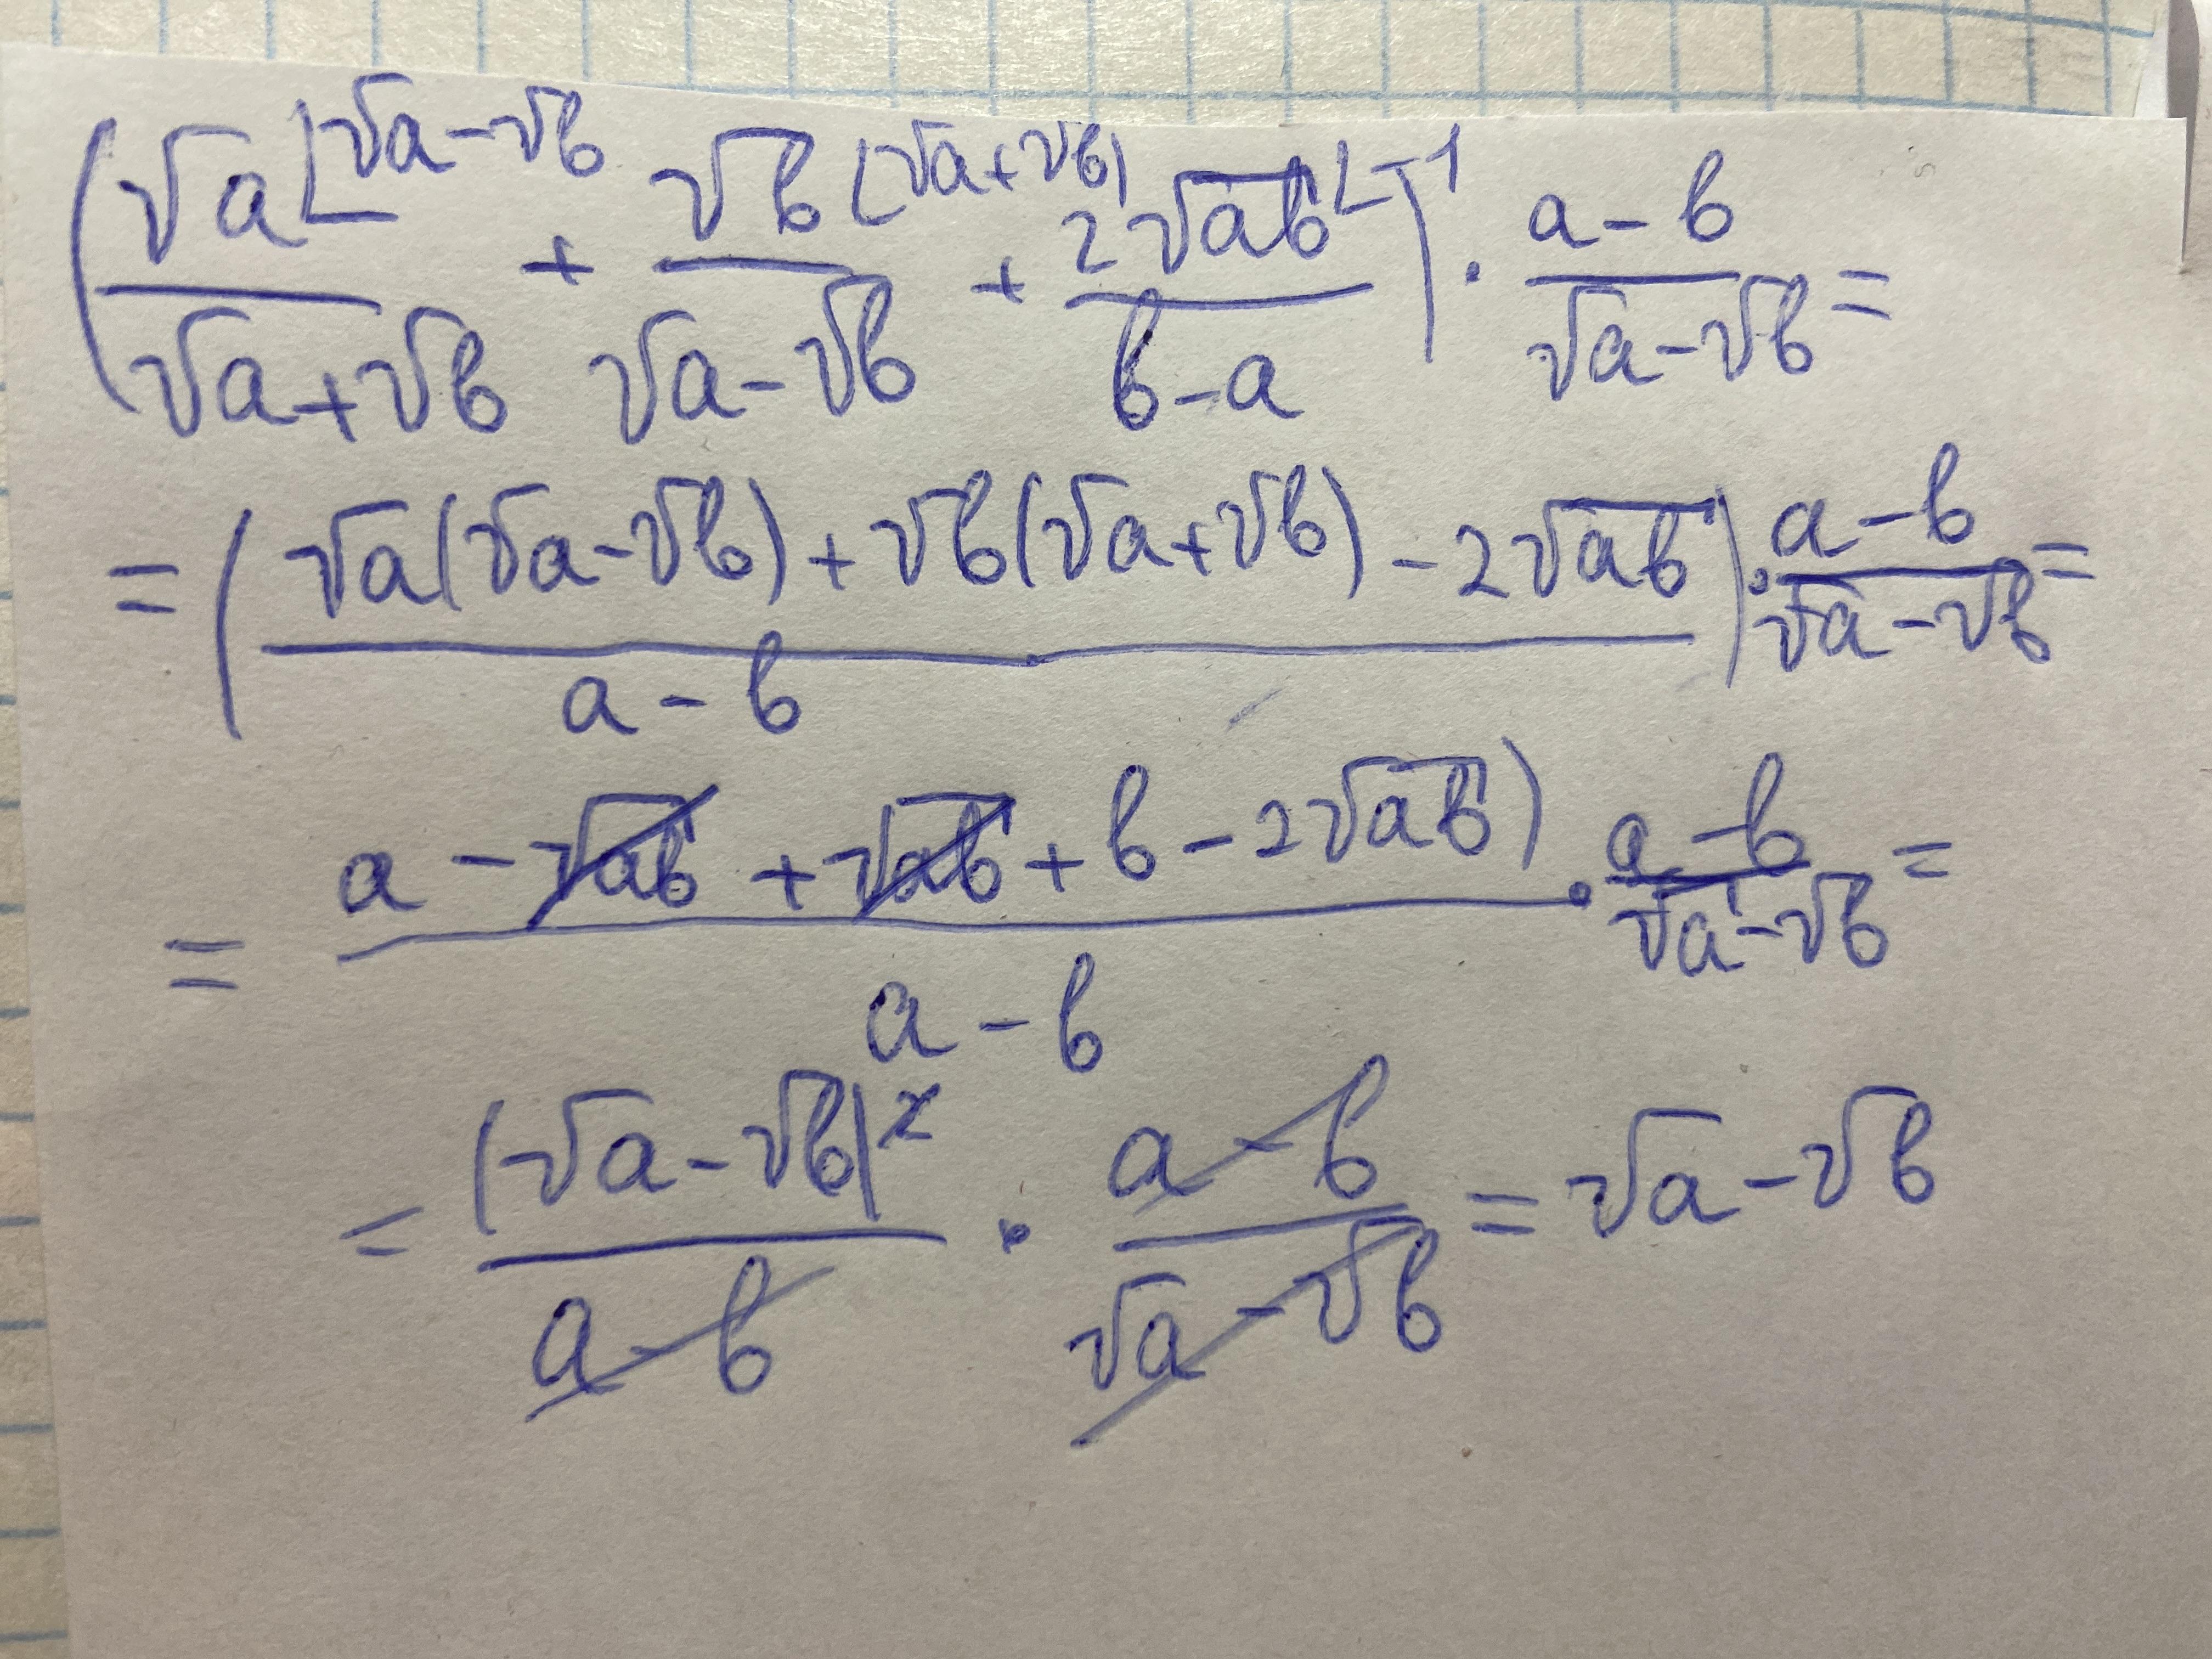 (√a ⌊√a-√b / √a+√b + √b ⌊√a+√b) / √a-√b + 2√ab ⌊-1 / b-a) · a-b / √a-√b =
= (√a(√a-√b)+√b(√a+√b)-2√ab / a-b) · a-b / √a-√b =
= a-√ab+√ab+b-2√ab) / a-b · a-b / √a-√b =
= (√a-√b)² / a-b · a-b / √a-√b = √a-√b